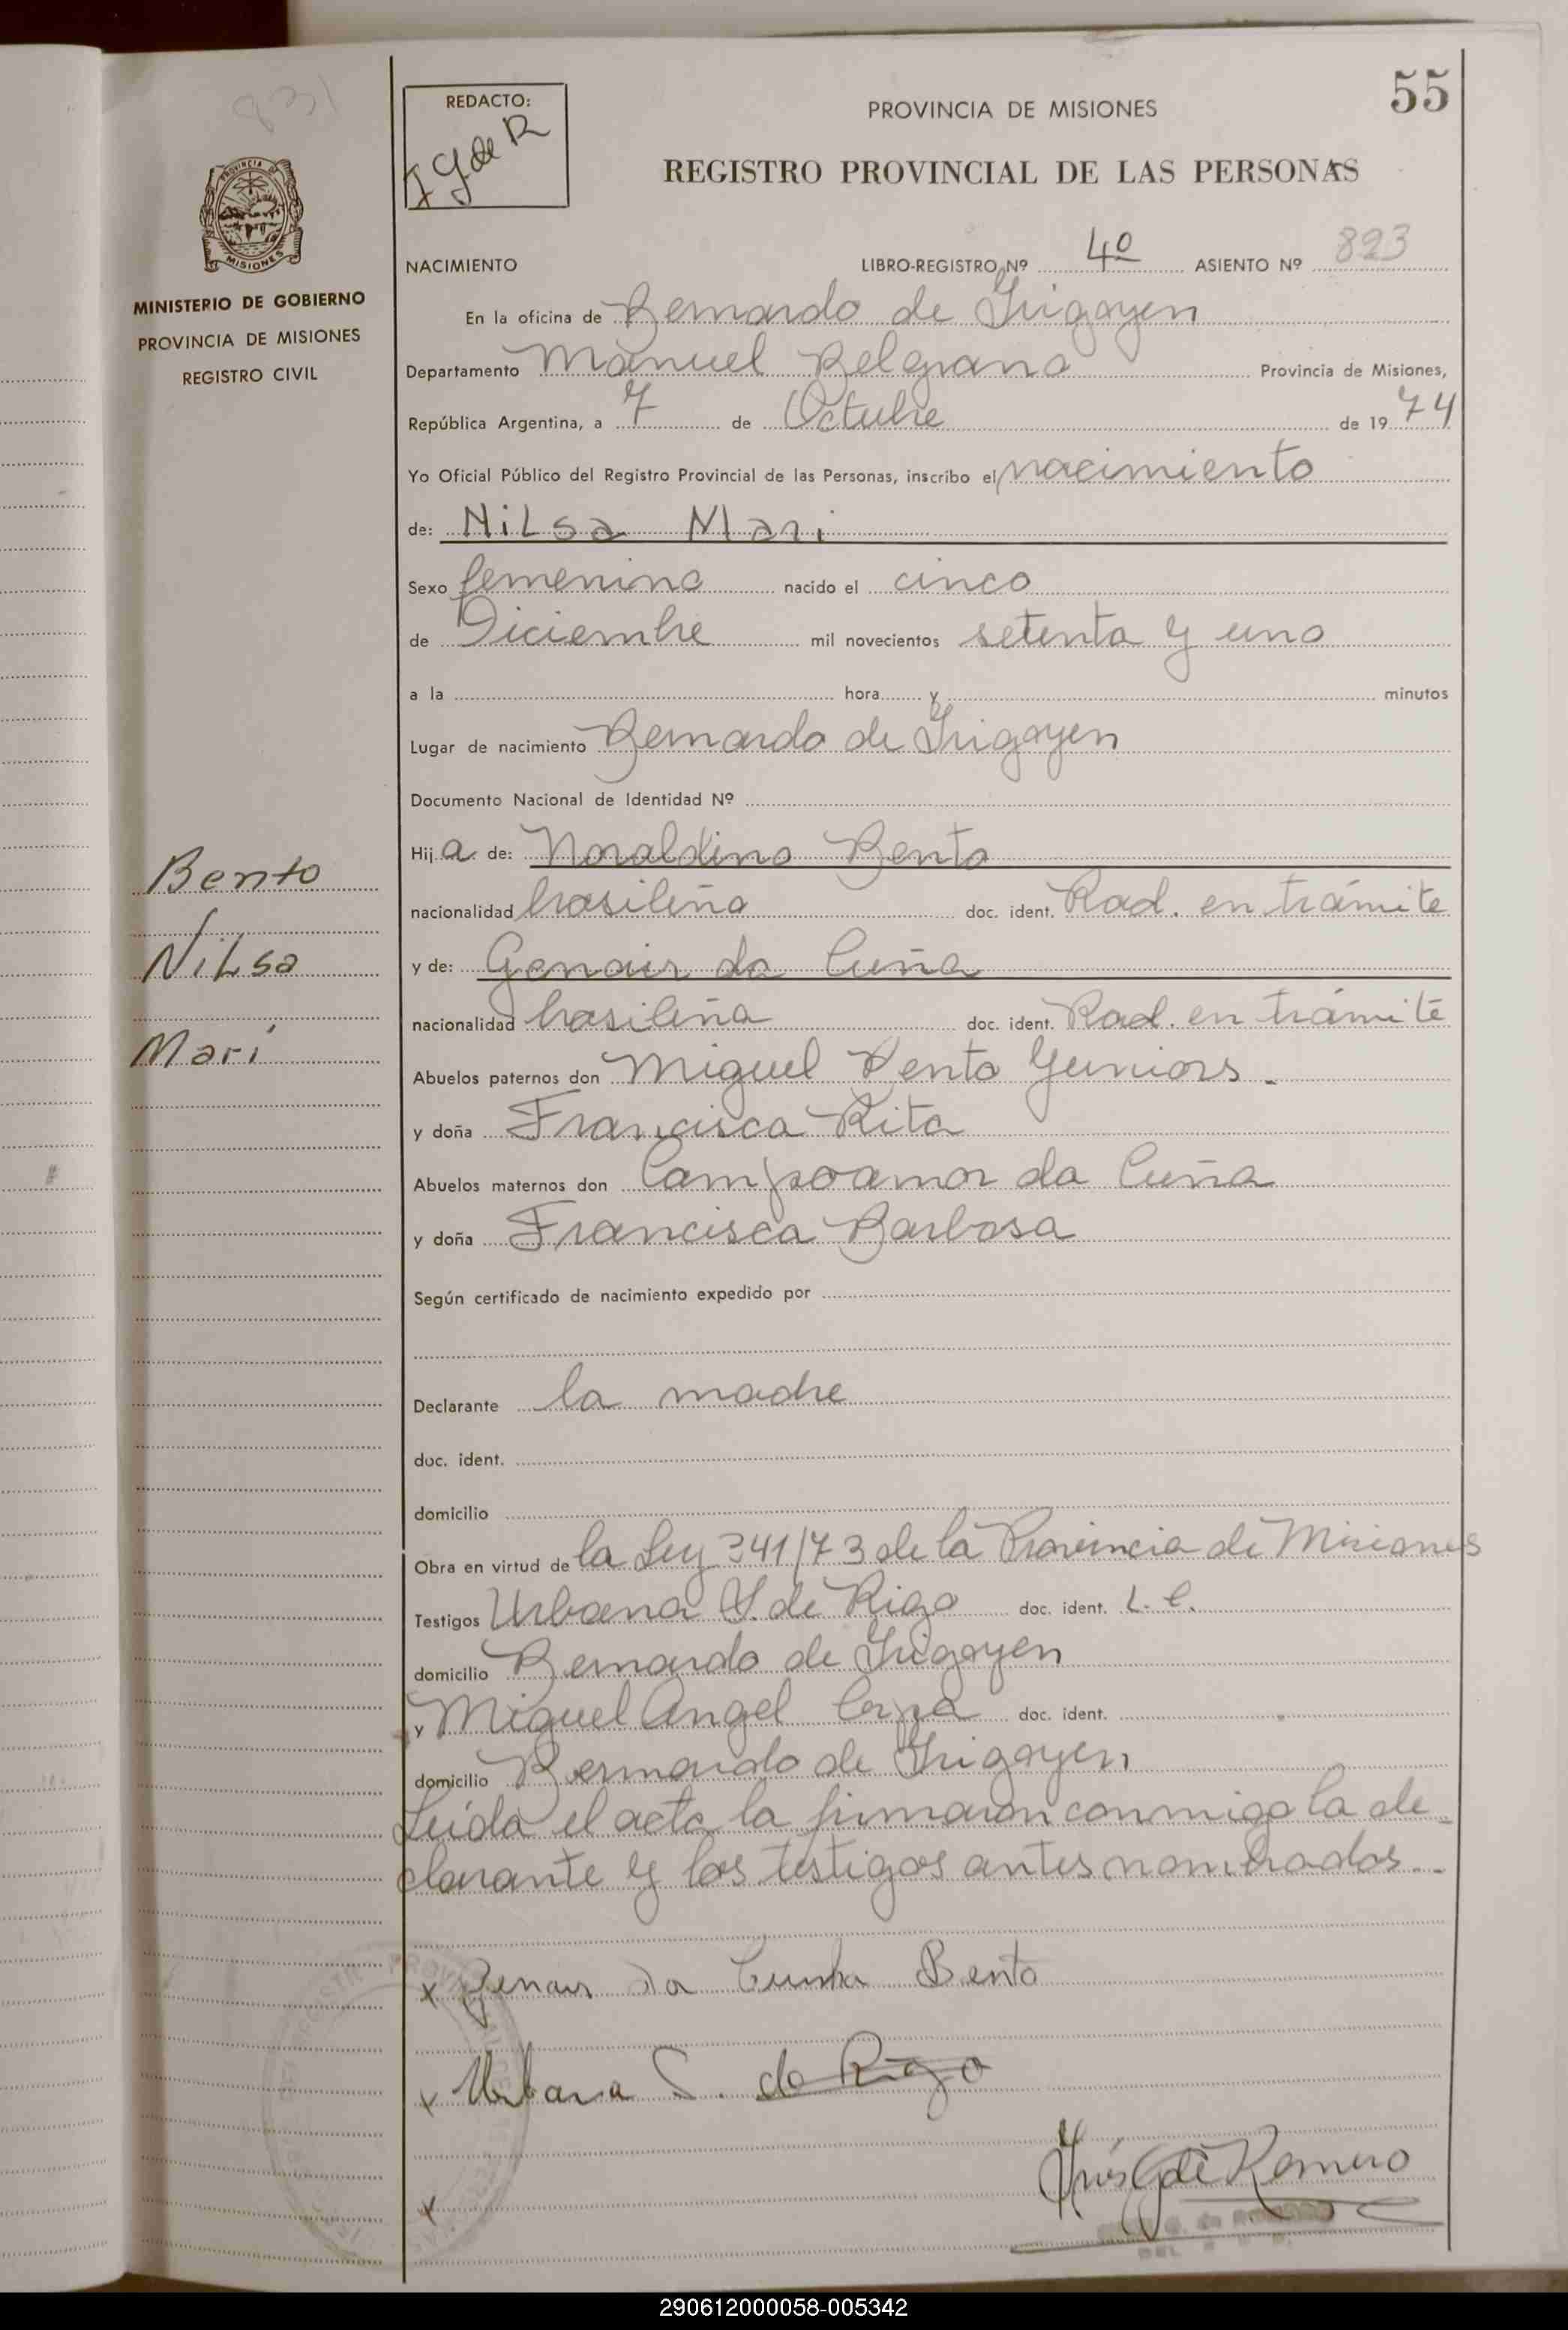 831
55
REDACTO:
I G de R
PROVINCIA DE MISIONES
REGISTRO PROVINCIAL DE LAS PERSONAS
PROVINCIA
MISIONES
MINISTERIO DE GOBIERNO
PROVINCIA DE MISIONES
REGISTRO CIVIL
NACIMIENTO LIBRO-REGISTRO Nº 4º ASIENTO Nº 823
En la oficina de Bernardo de Irigoyen
Departamento Manuel Belgrano Provincia de Misiones,
República Argentina, a 7 de Octubre de 1974
Yo Oficial Público del Registro Provincial de las Personas, inscribo el nacimiento
de: Nilsa Mari
Sexo femenino nacido el cinco
de Diciembre mil novecientos setenta y uno
a la hora y minutos
Lugar de nacimiento Bernardo de Irigoyen
Documento Nacional de Identidad Nº
Hija de: Noraldino Bento
Bento
nacionalidad brasileña doc. ident. Rad. en trámite
Nilsa
y de: Genair da Cuña
nacionalidad brasileña doc. ident. Rad. en trámite
Marí
Abuelos paternos don Miguel Bento Yuniors.
y doña Francisca Rita
Abuelos maternos don Campoamor da Cuña
y doña Francisca Barbosa
Según certificado de nacimiento expedido por
Declarante la madre
doc. ident.
domicilio
Obra en virtud de la Ley 341/73 de la Provincia de Misiones
Testigos Urbana S. de Rigo doc. ident. L. C.
domicilio Bernardo de Irigoyen
y Miguel Angel doc. ident.
domicilio Bernardo de Irigoyen
Leída el acta la firmaron conmigo la de-
clarante y los testigos antes nombrados.-
x Genair da Cunha Bento
x Urbana S. de Rigo
x
Inés G de Romero
290612000058-005342